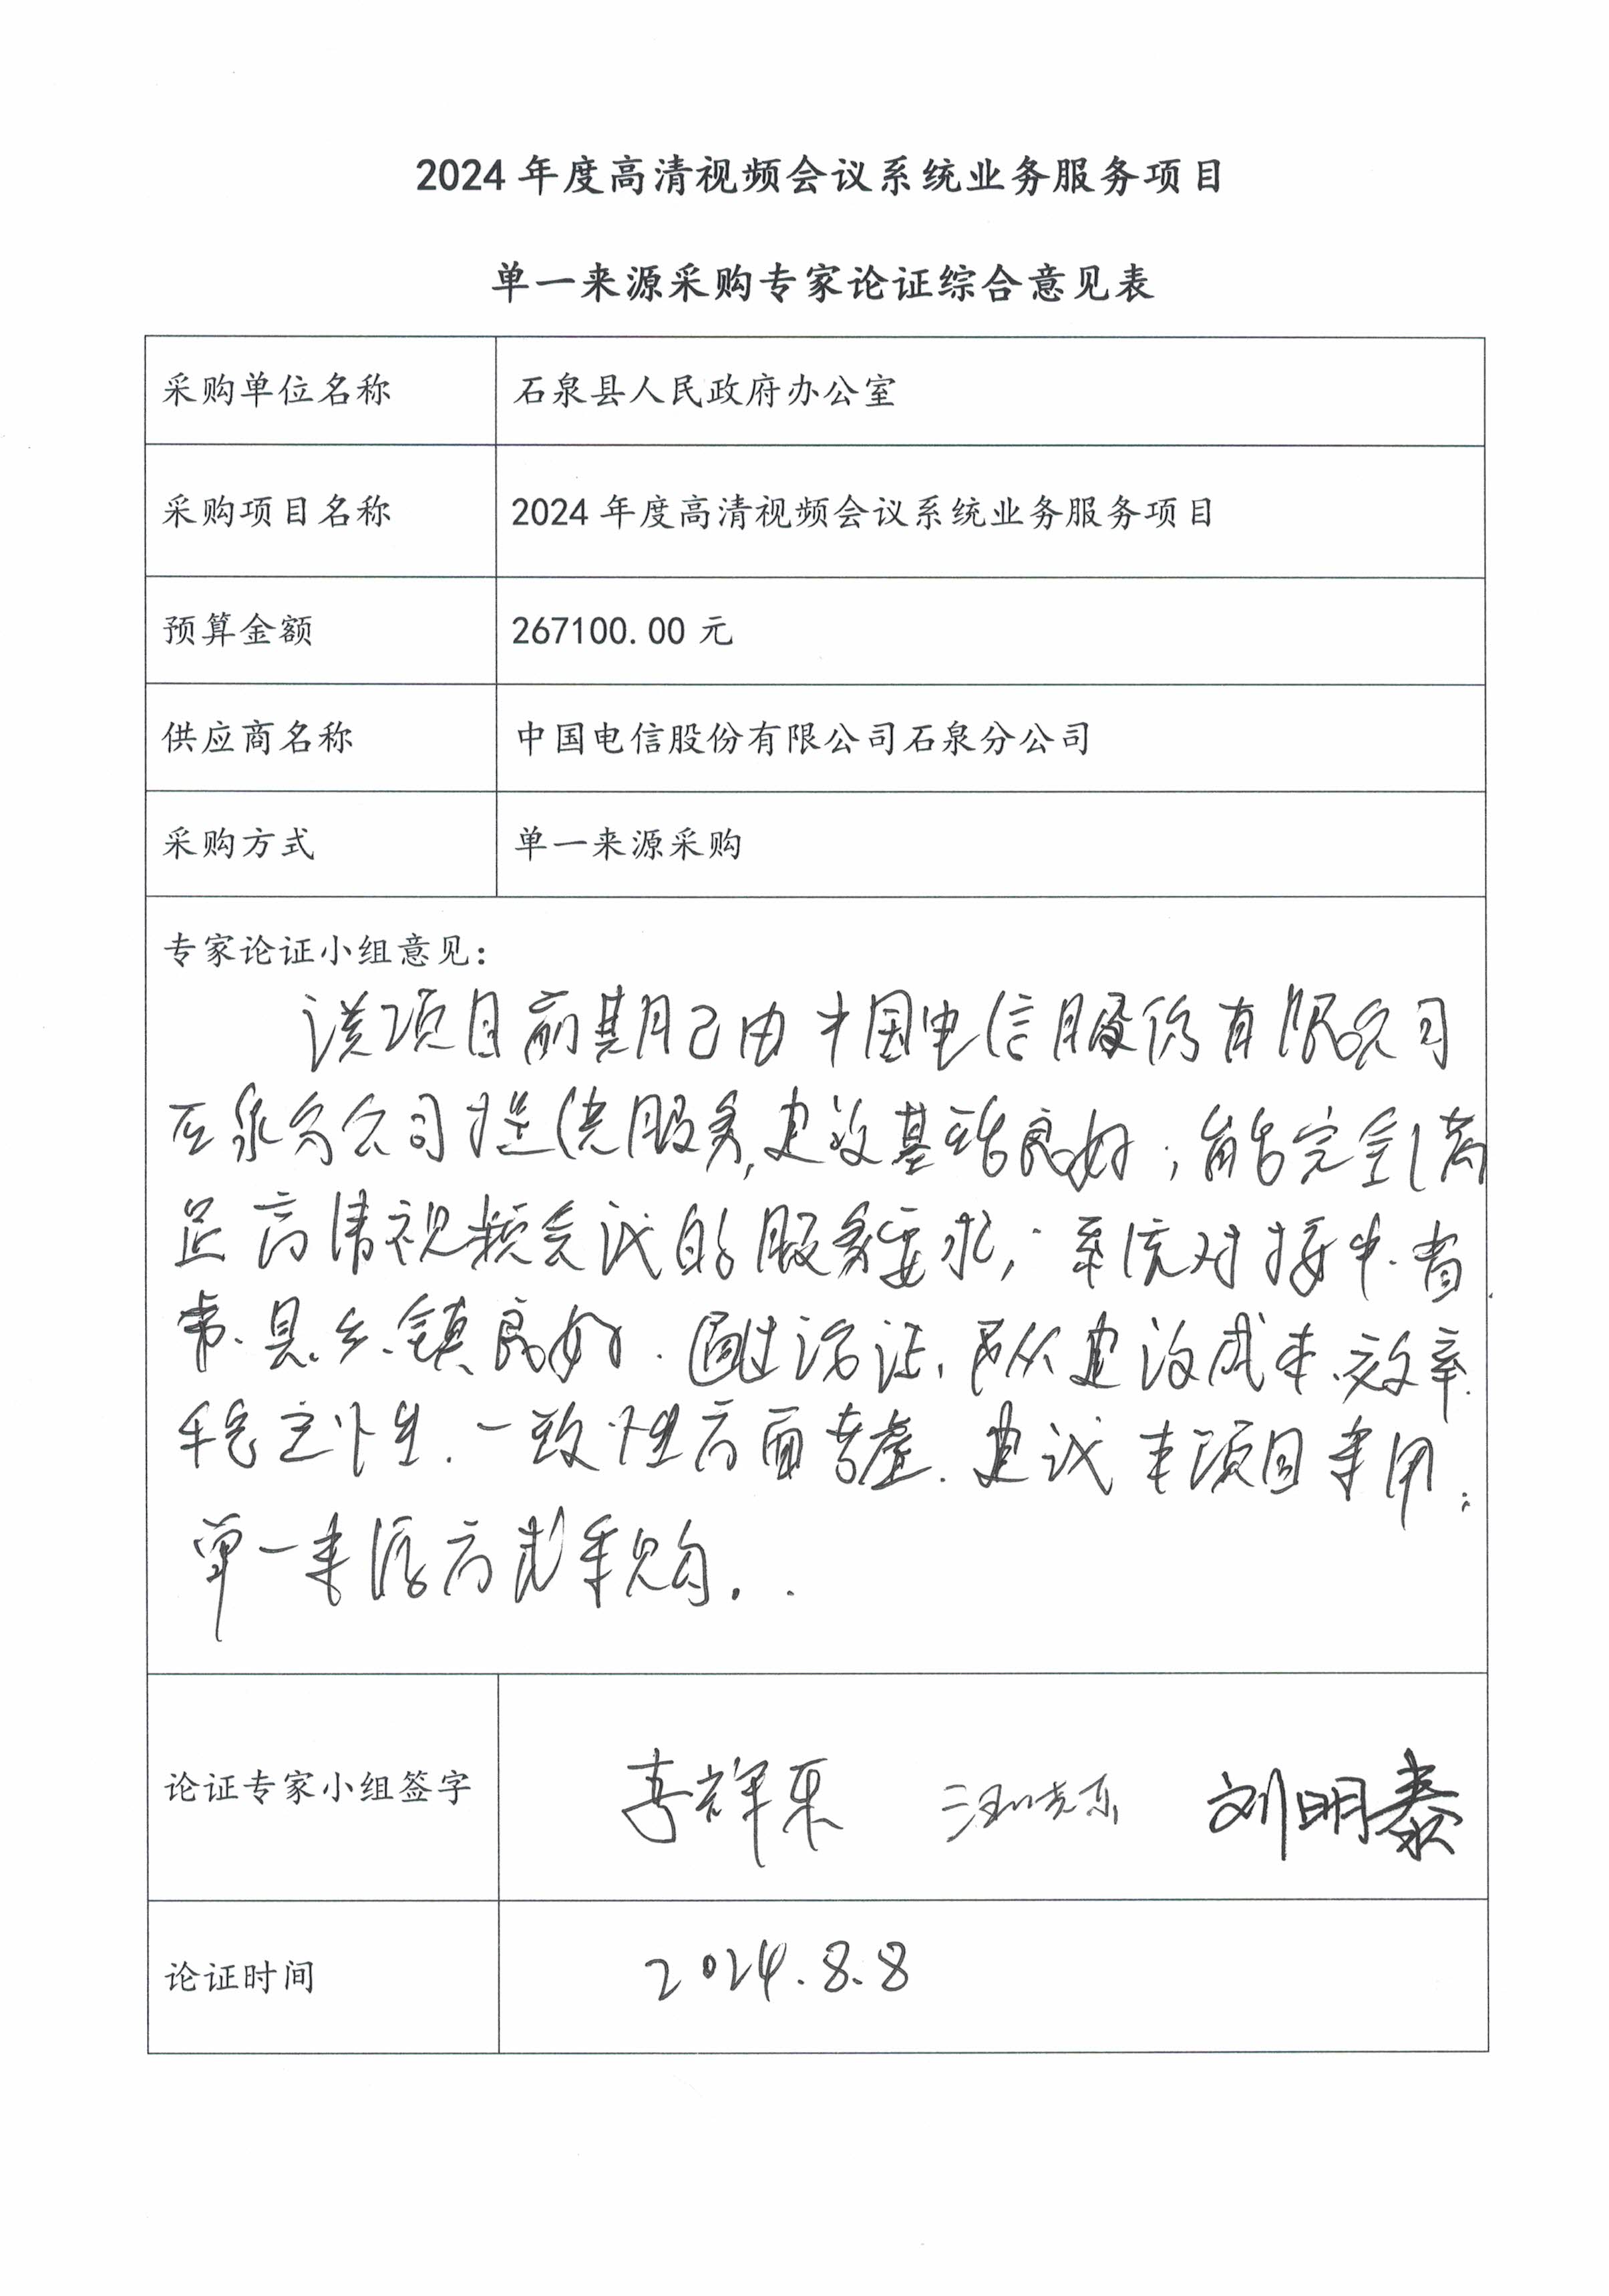 2024年度高清视频会议系统业务服务项目
单一来源采购专家论证综合意见表
采购单位名称 石泉县人民政府办公室
采购项目名称 2024年度高清视频会议系统业务服务项目
预算金额 267100.00元
供应商名称 中国电信股份有限公司石泉分公司
采购方式 单一来源采购
专家论证小组意见：
该项目前期已由中国电信股份有限公司
石泉分公司提供服务,建设基础良好;能完全满
足高清视频会议的服务要求;系统对接中.省
市.县.乡.镇良好.通过论证,从建设成本.效率.
稳定性.一致性方面考虑.建议本项目采用
单一来源方式采购.
论证专家小组签字 李祥东 汪晓东 刘明泰
论证时间 2024.8.8